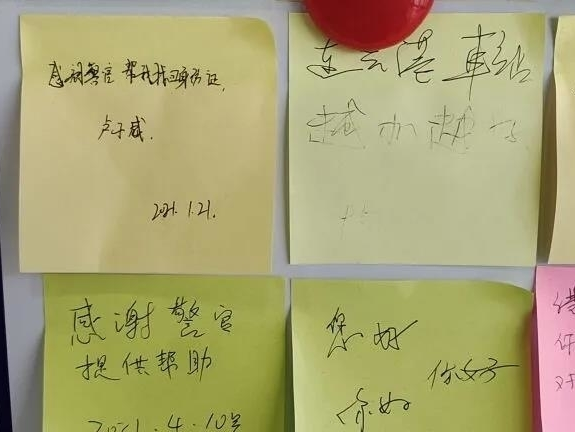 感谢警官帮我找回身份证,
卢子威.
2021.1.21.
连云港車站
越加越好
感谢警官
提供帮助
2021.4.10号
您好
你好
你好